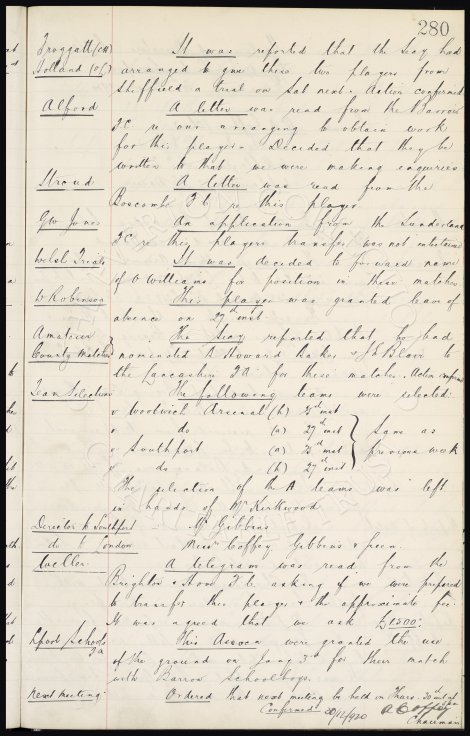 280
Froggatt (CH) It was reported that the Secy had
Holland (of) arranged to give these two players from
Sheffield a trial on Sat next. Action confirmed
Alford A letter was read from the Barrow
FC re our arranging to obtain work
for this player. Decided that they be
written to that we were making enquiries
Stroud A letter was read from the
Boscombe F.C. re this player
Geo Jones An application from the Sunderland
FC re this players transfer was not entertained
Welsh Trials It was decided to forward name
of O Williams for position in these matches
D Robinson This player was granted leave of
absence on 27th inst
Amateur The Secy reported that he had
County Matches nominated R Howard Baker & J Blair to
the Lancashire FA for these matches. Action confirmed
Team Selections The following teams were selected:
v Woolwich Arsenal (h) 25th inst
v do (a) 27th inst Same as
v Southport (a) 25th inst previous week
v do (h) 27th inst
The selection of the A teams was left
in hands of Mr Kirkwood
Director to Southport Mr Gibbins
do to London Messrs Coffey Gibbins & Green
Waller A telegram was read from the
Brighton & Hove F.C. asking if we were prepared
to transfer this player & the approximate fee.
It was agreed that we ask £1500.
Lpool Schools This Assocn were granted the use
FA
of the ground on Jany 3rd for their match
with Barrow Schoolboys.
Next meeting: Ordered that next meeting be held on Thurs. 30th inst at
Confirmed 30/12/920
Chairman